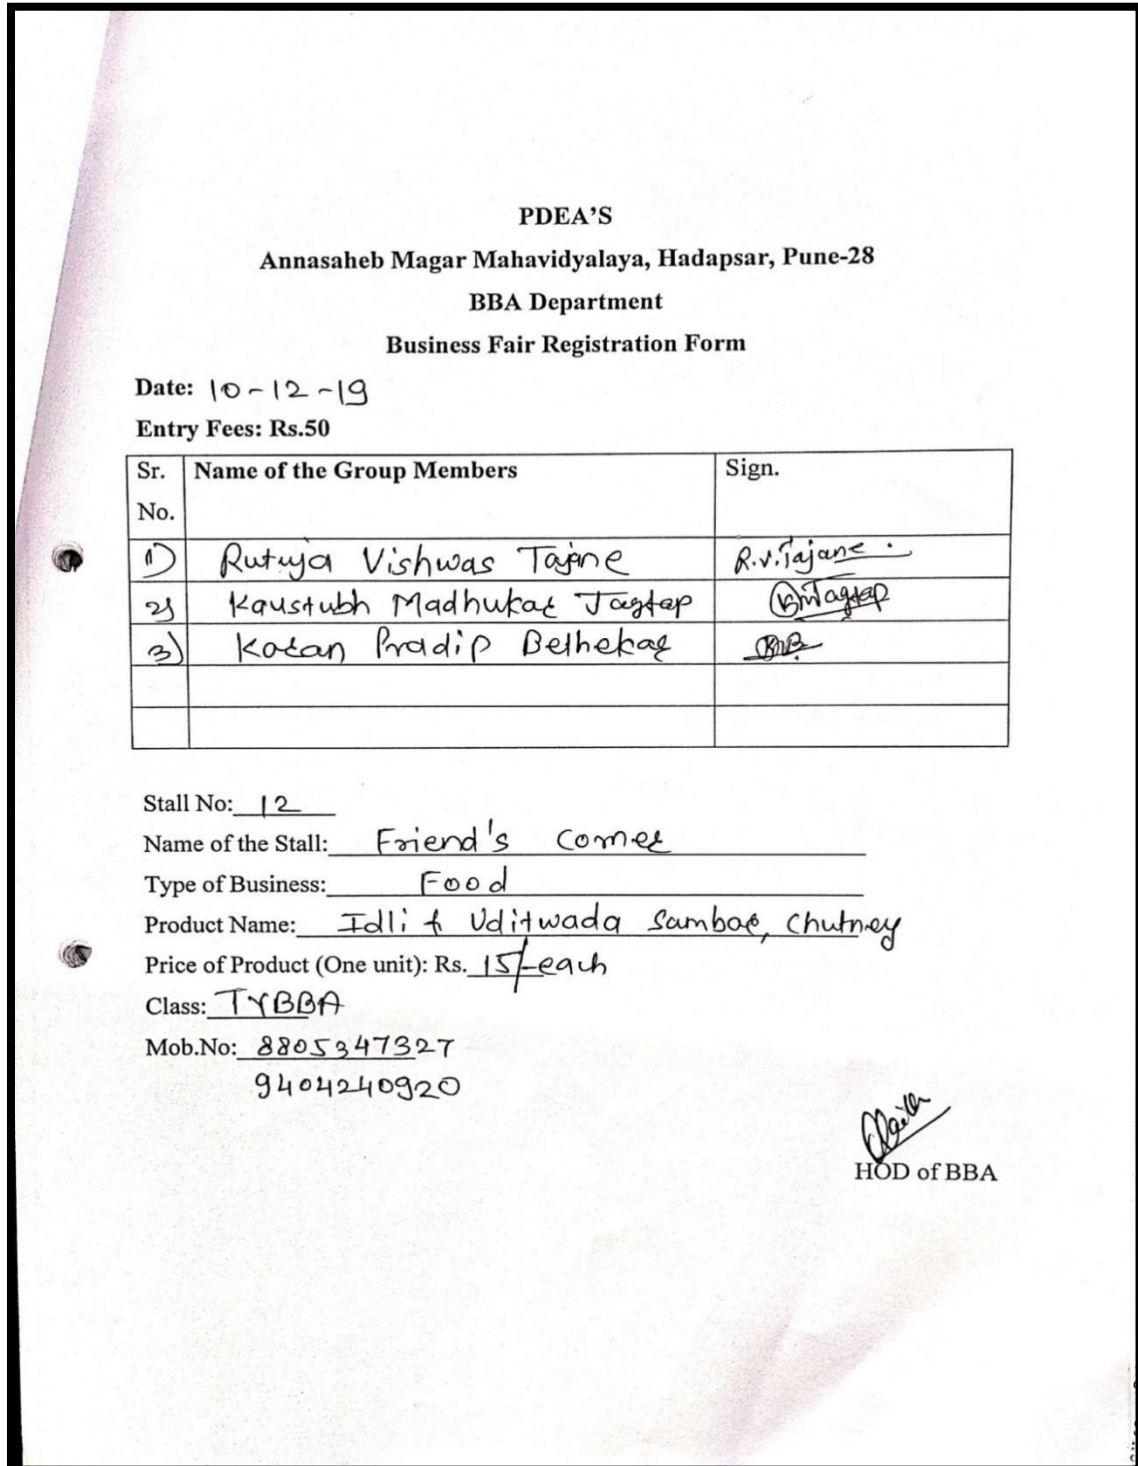 PDEA'S
Annasaheb Magar Mahavidyalaya, Hadapsar, Pune-28
BBA Department
Business Fair Registration Form
Date: 10-12-19
Entry Fees: Rs.50
Sr. No. Name of the Group Members Sign.
1) Rutuja Vishwas Tajane R.V.Tajane.
2) Kaustubh Madhukar Jagtap KMJagtap
3) Karan Pradip Belhekar
Stall No: 12
Name of the Stall: Friend's Corner
Type of Business: Food
Product Name: Idli & Uditwada Sambar, Chutney
Price of Product (One unit): Rs. 15/-each
Class: TYBBA
Mob.No: 8805347327
9404240920
HOD of BBA